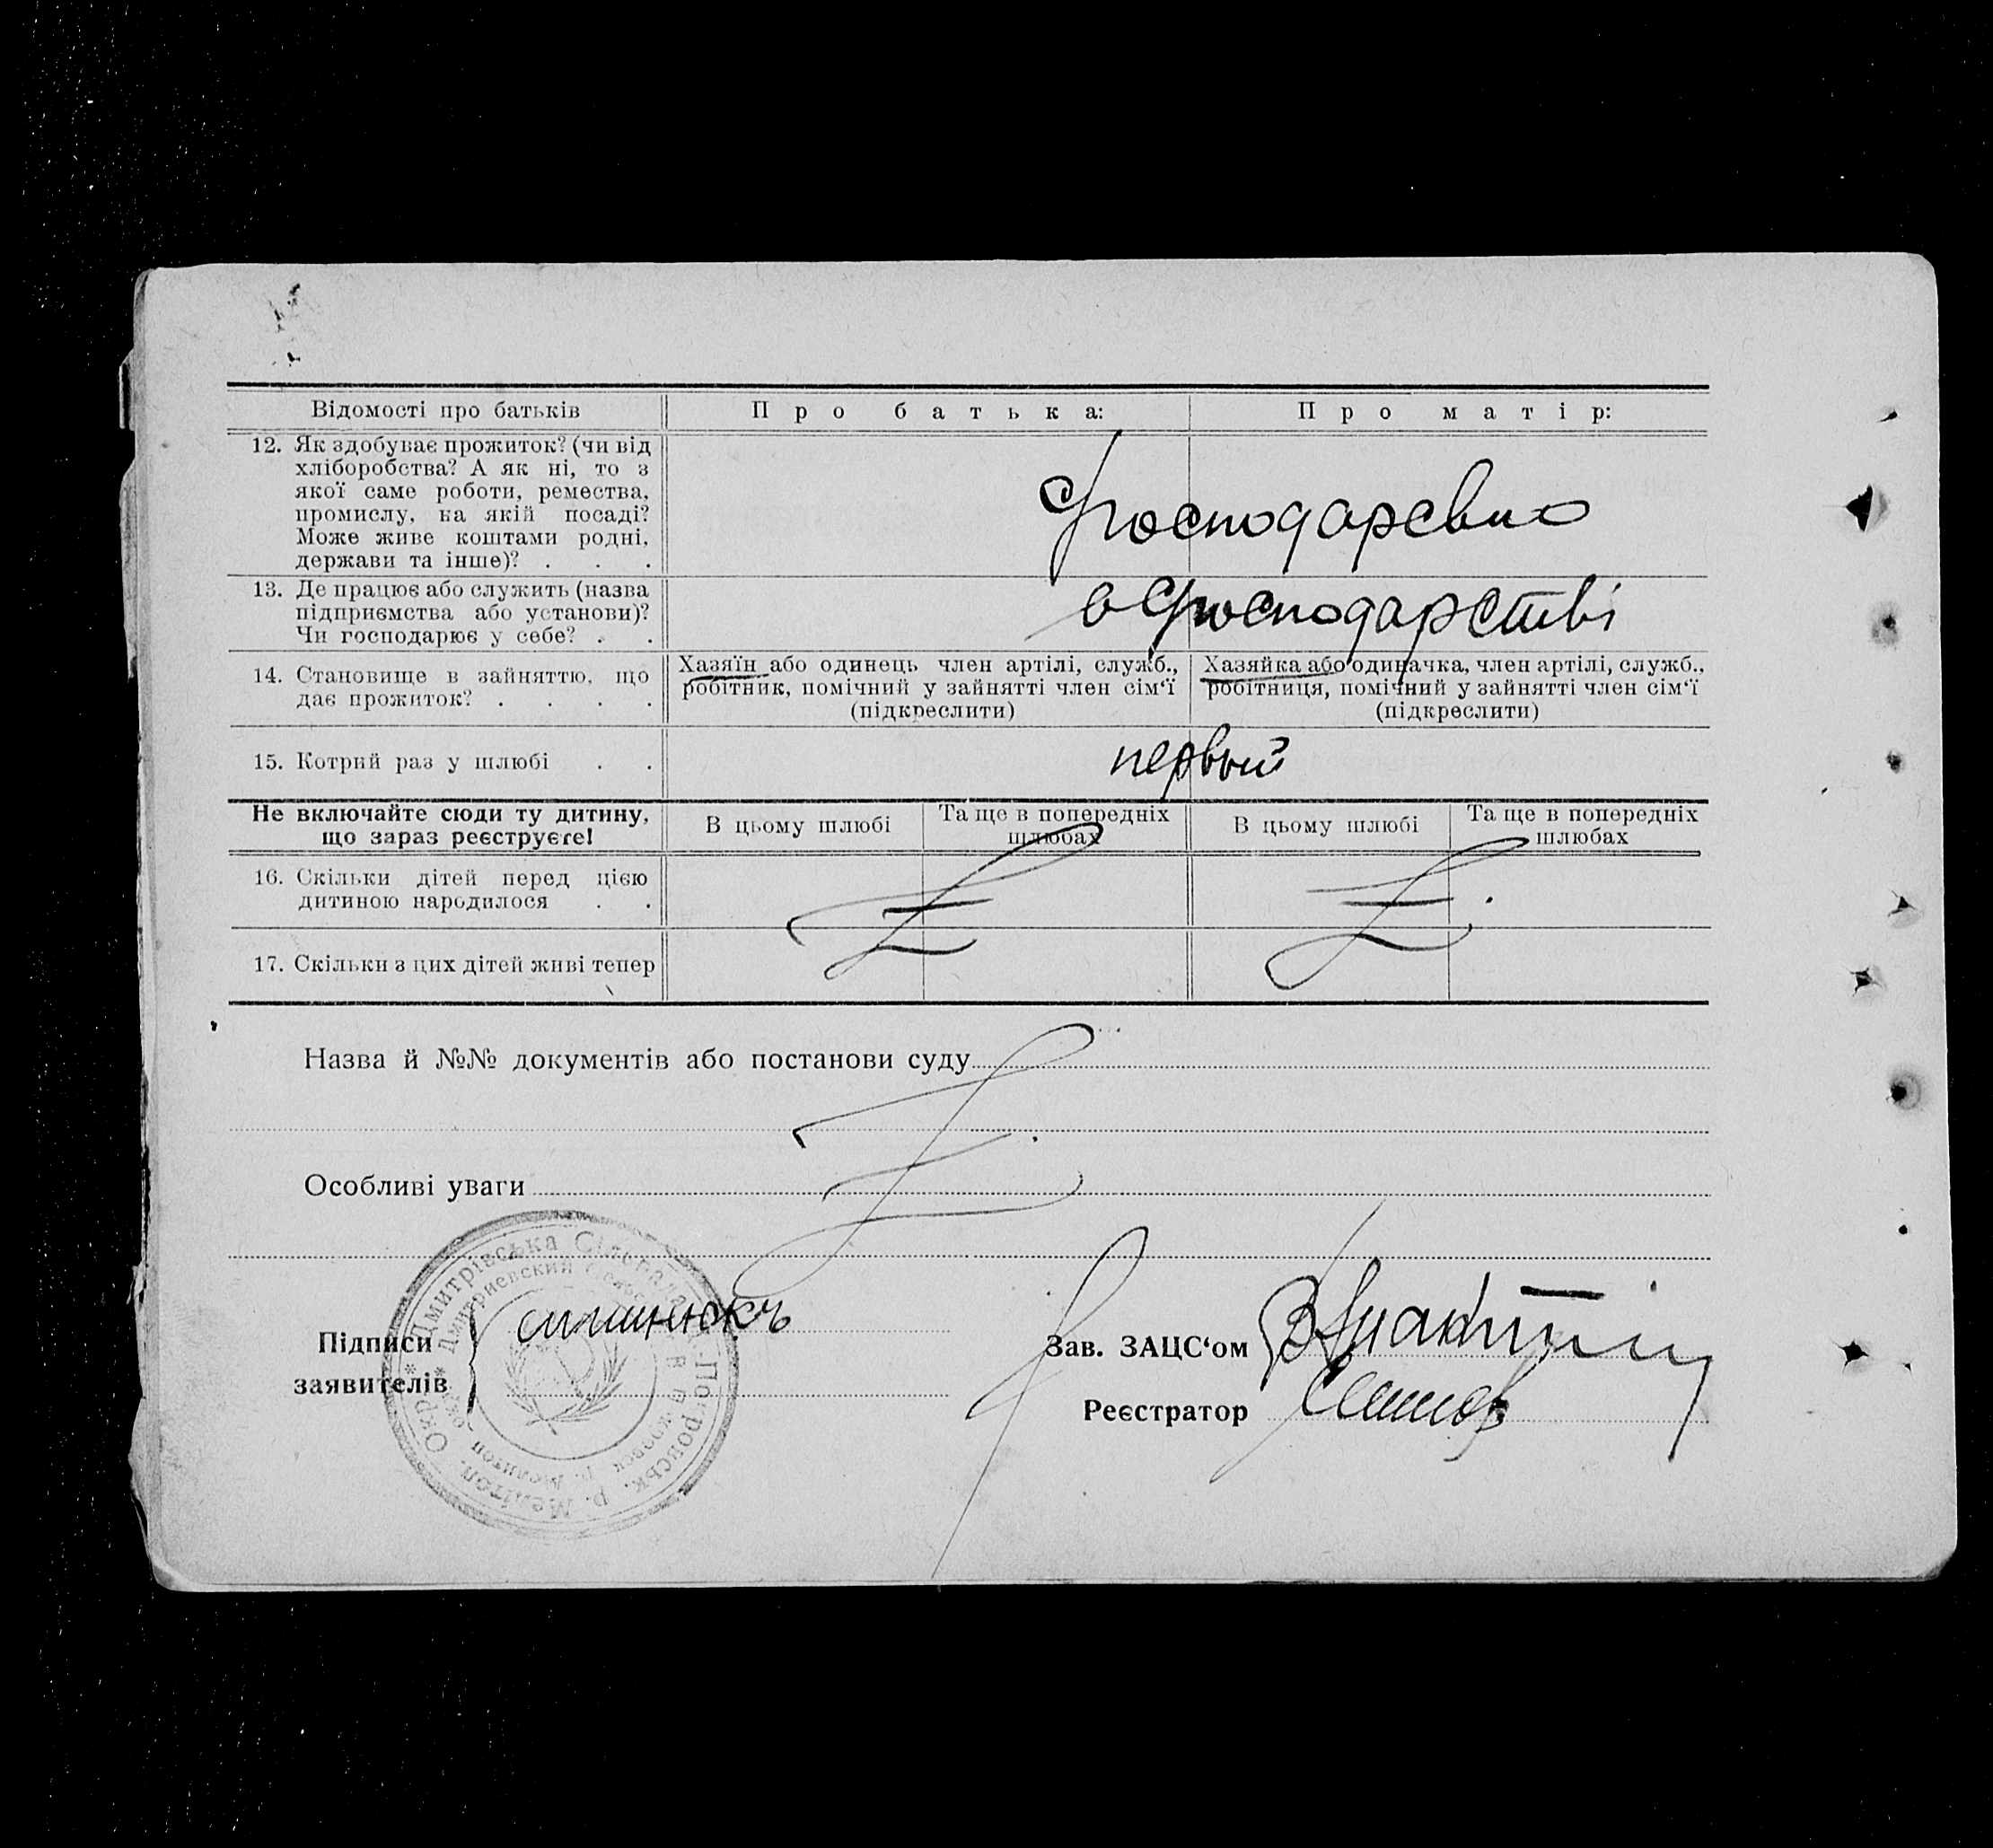 Відомості про батьків
Про батька:
Про матір:
12. Як здобуває прожиток? (чи від
хліборобства? А як ні, то з
якої саме роботи, ремества,
промислу, на якій посаді?
Може живе коштами родні,
держави та інше)? . . .
13. Де працює або служить (назва
підприємства або установи)?
Чи господарює у себе? . .
в господарстві
14. Становище в зайняттю, що
дає прожиток? . . . .
Хазяїн або одинець член артілі, служб.,
робітник, помічний у зайнятті член сім‘ї
(підкреслити)
Хазяйка або одиначка, член артілі, служб.,
робітниця, помічний у зайнятті член сім‘ї
(підкреслити)
15. Котрий раз у шлюбі . .
первый
Не включайте сюди ту дитину,
що зараз реєструєте!
В цьому шлюбі
Та ще в попередніх
шлюбах
В цьому шлюбі
Та ще в попередніх
шлюбах
16. Скільки дітей перед цією
дитиною народилося . .
17. Скільки з цих дітей живі тепер
Назва й №№ документів або постанови суду
Особливі уваги
Підписи
заявителів
Зав. ЗАЦС‘ом
Реєстратор
Дмитрівська
Дмитриевский